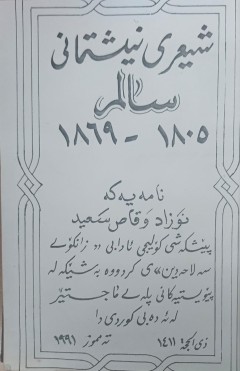 شیعری نیشتمانی
سالم
١٨٠٥ - ١٨٦٩
نامەیەکە
نەوزاد وقاص سعید
پێشکەشی کۆلیجی ئادابی «زانکۆی
سەلاحەدین»ی کردووە بەشێکە لە
پێویستیەکانی پلەی ماجستێر
لە ئەدەبی کوردی دا
ذی الحجة ١٤١١
تەموز ١٩٩١